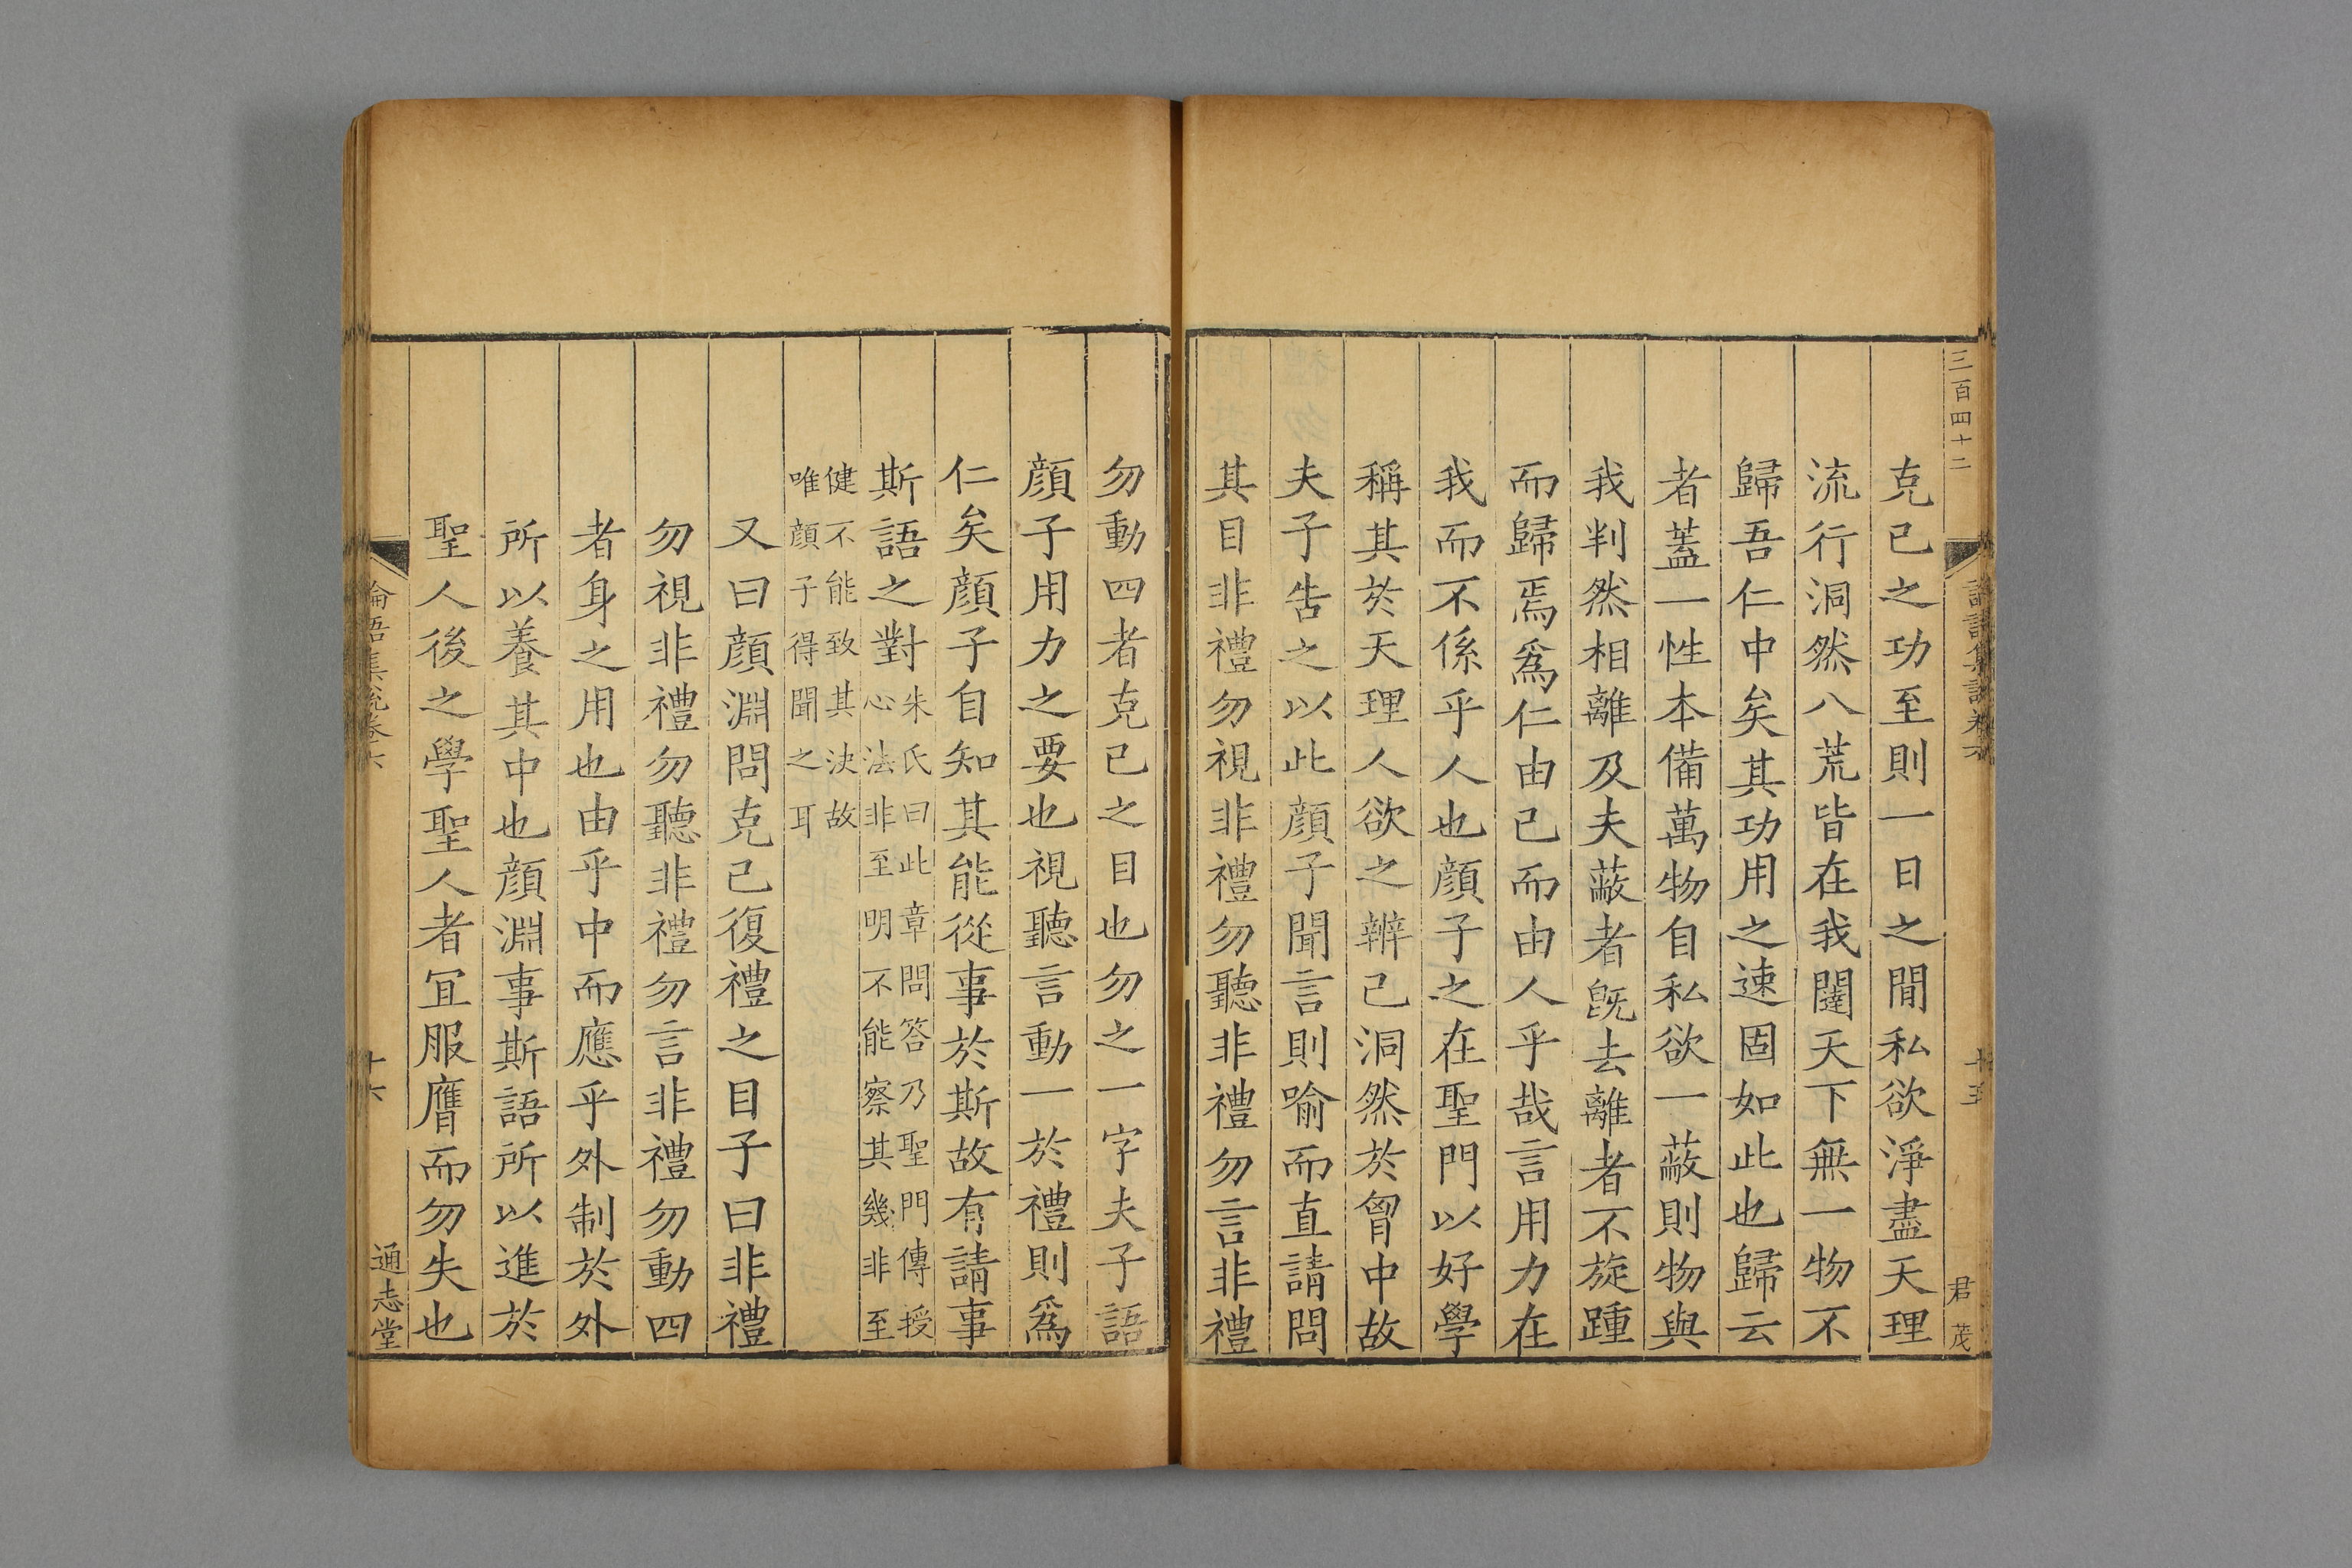 三百四十二
君茂
克己之功至則一日之間私欲淨盡天理
流行洞然八荒皆在我闥天下無一物不
歸吾仁中矣其功用之速固如此也歸云
者蓋一性本備萬物自私欲一蔽則物與
我判然相離及夫蔽者旣去離者不旋踵
而歸焉爲仁由己而由人乎哉言用力在
我而不係乎人也顔子之在聖門以好學
稱其於天理人欲之辨己洞然於胷中故
夫子告之以此顔子聞言則喻而直請問
其目非禮勿視非禮勿聽非禮勿言非禮
勿動四者克己之目也勿之一字夫子語
顔子用力之要也視聽言動一於禮則爲
仁矣顔子自知其能從事於斯故有請事
斯語之對朱氏曰此章問答乃聖門傳授
心法非至明不能察其幾非至
健不能致其決故
唯顔子得聞之耳
又曰顔淵問克己復禮之目子曰非禮
勿視非禮勿聽非禮勿言非禮勿動四
者身之用也由乎中而應乎外制於外
所以養其中也顔淵事斯語所以進於
聖人後之學聖人者宜服膺而勿失也
論語集說卷六
十六
通志堂